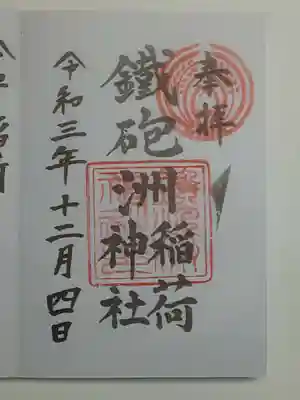 奉拝
鐵砲洲稲荷神社
令和三年十二月四日